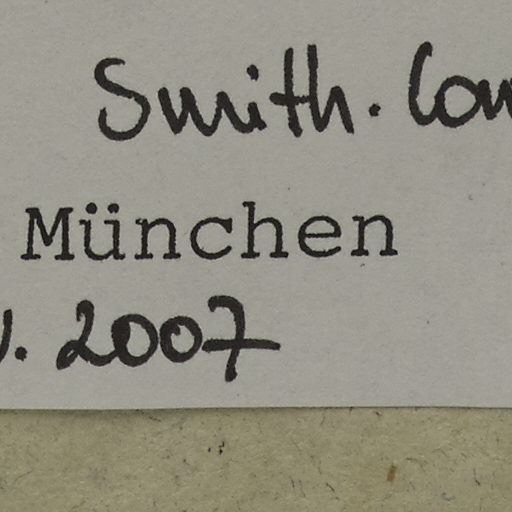 Smith.
München
. 2007